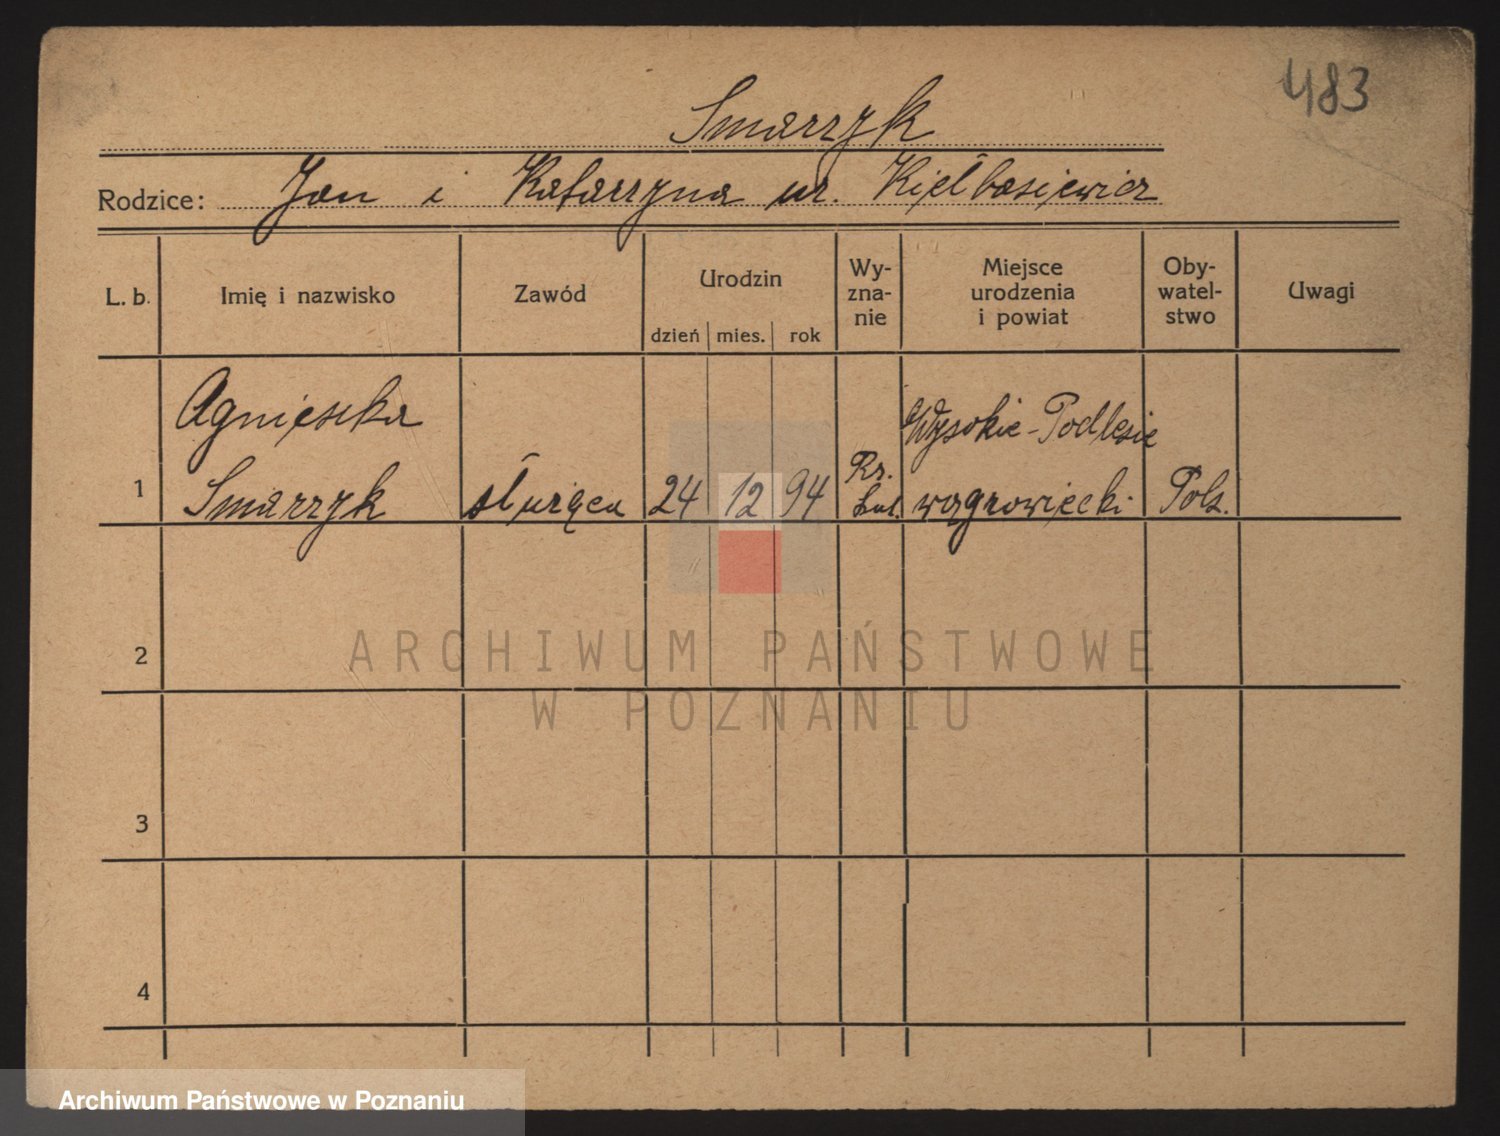 483
Smarzyk
Rodzice: Jan i Katarzyna ur. Kiełbasiewicz
L. b. Imię i nazwisko Zawód Urodzin Wy-zna-nie Miejsce urodzenia i powiat Oby-watel-stwo Uwagi
dzień mies. rok
Agnieszka
Wysokie-Podlesie
Rz.
1 Smarzyk służąca 24 12 94 kat. wągrowiecki Pols.
2
ARCHIWUM PAŃSTWOWE
W POZNANIU
3
4
Archiwum Państwowe w Poznaniu